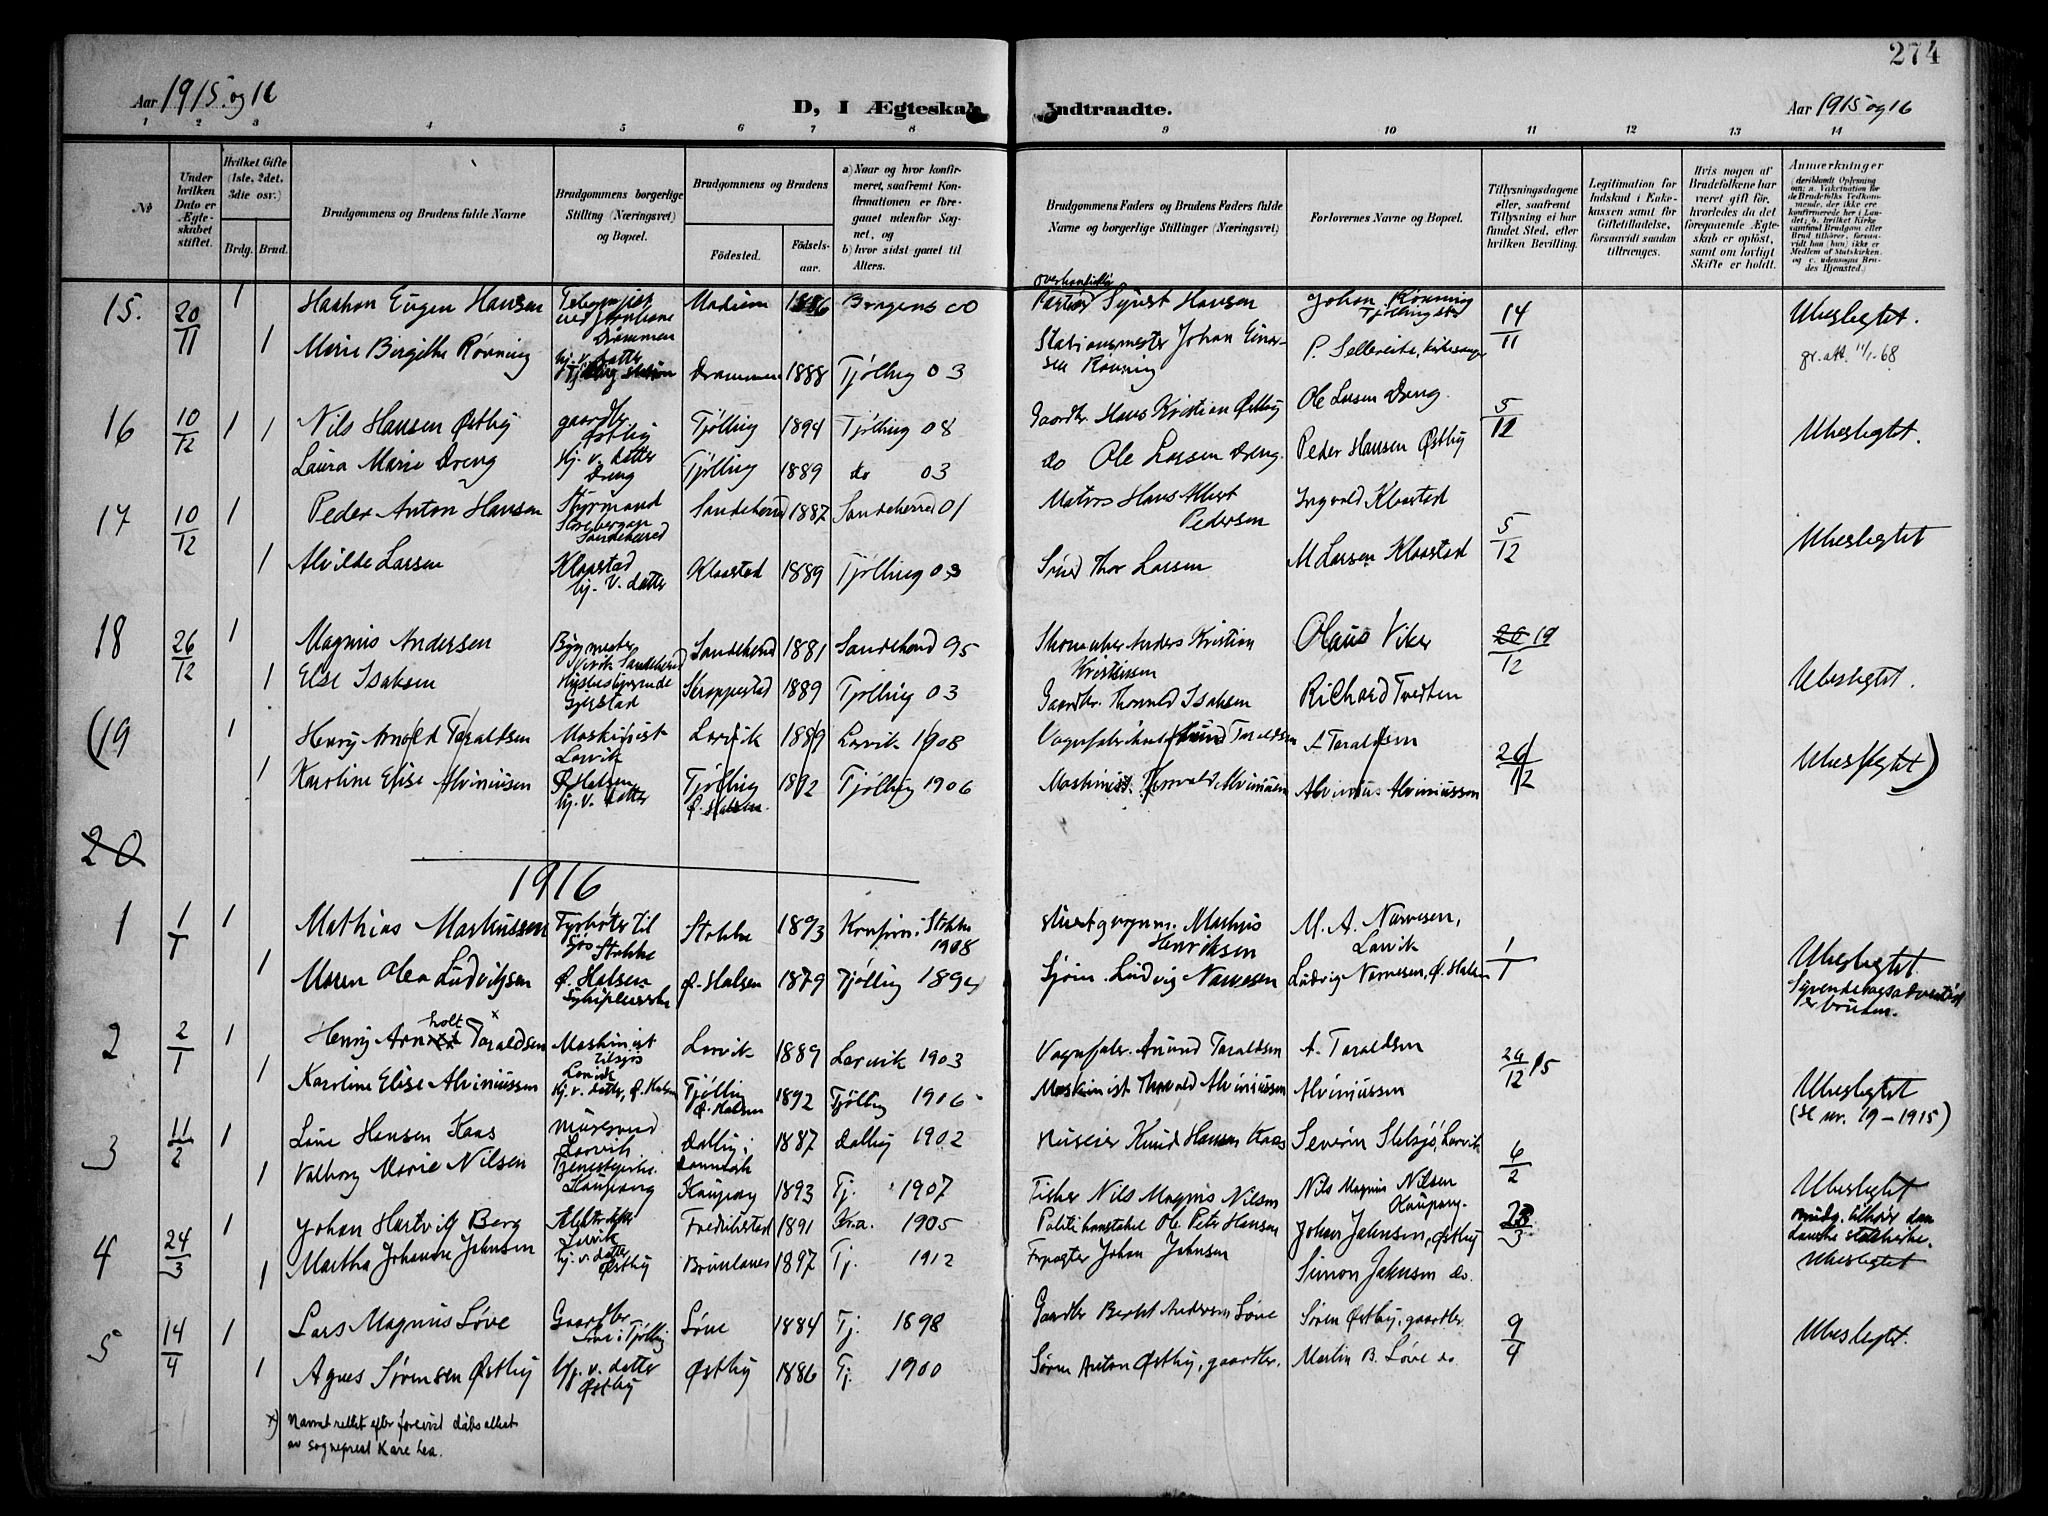 274
Aar 1915 og 16
D, I Ægteskab Indtraadte.
Aar 1915 og 16
1 2 3 4 5 6 7 8 9 10 11 12 13 14
No
Under hvilken Dato er Ægteskabet stiftet.
Hvilket Gifte (1ste, 2det, 3die osv.)
Brdg. Brud.
Brudgommens og Brudens fulde Navne
Brudgommens borgerlige Stilling (Næringsvei) og Bopæl.
Brudgommens og Brudens
Fødested. Fødselsaar.
a) Naar og hvor konfirmeret, saafremt Konfirmationen er foregaaet udenfor Sognet, og
b) hvor sidst gaaet til Alters.
Brudgommens Faders og Brudens Faders fulde Navne og borgerlige Stillinger (Næringsvei)
Forlovernes Navne og Bopæl.
Tillysningsdagene eller, saafremt Tillysning ei har fundet Sted, efter hvilken Bevilling.
Legitimation for Indskud i Enkekassen samt for Giftetilladelse, forsaavidt saadan tiltrænges.
Hvis nogen af Brudefolkene har været gift før, hvorledes da det foregaaende Ægteskab er opløst, samt om lovligt Skifte er holdt.
Anmærkninger
(deriblandt Oplysning om: a. Vakcination for de Brudefolks Vedkommende, der ikke ere konfirmerede her i Landet; b. hvilket Kirkesamfund Brudgom eller Brud tilhører, forsaavidt han (hun) ikke er Medlem af Statskirken, og c. udensogns Brudes Hjemsted.)
15. 20/11 1 Haakon Eugen Hansen Drammen 1886 Bragenes 00 Hansen Johan Rønning 14/11 Ubeslegtet.
1 Marie Birgithe Rønning hj. v. datter Tjølling station Drammen 1888 Tjølling 03 Stationsmester Johan Einersen Rønning P. Sellereite, kirkesanger gr. att. 11/1-68
16 10/12 1 1 Nils Hansen Østby gaardbr. Østby Tjølling 1894 Tjølling 08 Gaardbr. Hans Kristian Østby Ole Larsen Dreng. 5/12 Ubeslegtet.
Laura Marie Dreng Hj. v. datter Dreng Tjølling 1889 do 03 do Ole Larsen Dreng. Peder Hansen Østby
17 10/12 1 Peder Anton Hansen Styrmand Sandeherred Sandeherred 1887 Sandeherred 01 Matros Hans Albert Pedersen Ingvald Klaastad 5/12 Ubeslegtet
1 Alvilde Larsen Klaastad hj. v. datter Klaastad 1889 Tjølling 03 Thor Larsen M Larsen Klaastad
18 26/12 1 Magnus Andersen Bygmester Sandeherred Sandeherred 1881 Sandeherred 95 Skomaker Anders Kristian Kristensen Olaus Viker 20 19/12 Ubeslegtet.
1 Else Isaksen Skroppestad 1889 Tjølling 03 Gaardbr. Thorvald Isaksen Richard Tvedten
(19 1 Henry Arnold Taraldsen Maskinist Larvik Larvik 1889 Larvik 1908 Vognfabrikant Amund Taraldsen A Taraldsen 26/12 Ubeslegtet)
1 Karoline Elise Alviniussen Ø. Halsen hj. v. datter Tjølling Ø. Halsen. 1892 Tjølling 1906 Maskinist. Thorvald Alviniussen Alvinius Alviniussen
20
1916
1 1/1 1 Mathias Markussen Fyrbøter til sjøs Stokke Stokke 1893 Konfirm. i Stokke 1908 Markus Henriksen M. A. Narvesen, Larvik 1/1 Ubeslegtet.
1 Maren Olea Ludvigsen Ø. Halsen Sykepleierske Ø. Halsen 1879 Tjølling 1894 Sjøm. Ludvig Narvesen Ludvig Narvesen, Ø. Halsen Syvendedagsadventist er bruden.
2 2/1 1 Henry Arnholt x Taraldsen Maskinist tilsjøs Larvik Larvik 1889 Larvik 1903 Vognfabr. Amund Taraldsen A. Taraldsen 29/12 15
1 Karoline Elise Alviniussen Hj. v. datter, Ø. Halsen Tjølling Ø. Halsen 1892 Tjølling 1916 Maskinist Thorvald Alviniussen Alviniussen Ubeslegtet (se nr. 19 – 1915)
3 11/2 1 Line Hansen Kaas mursvend Larvik Dalby i Danmark 1887 Dalby 1902 Knud Hansen Kaas Severin Stelsjø, Larvik 6/2 Ubeslegtet
1 Valborg Marie Nilsen Tjenestepike Kaupang Kaupang 1893 Tj. 1907 Fisker Nils Magnus Nilsen Nils Magnus Nilsen Kaupang. Brudg. tilhører den danske statskirke.
4 24/3 1 Johan Hartvig Berg Larvik Fredrikstad 1891 Kra. 1905 Politikonstabel Ole Peter Hansen Johan Johnsen, Østby 23/3 Ubeslegtet
1 Martha Johanne Johnsen hj. v. datter Østby Brunlanes 1897 Tj. 1912 Forpagter Johan Johnsen Simon Johnsen do.
5 14/4 1 Lars Magnus Løve Gaardbr. Løve i Tjølling Løve 1884 Tj. 1898 Gaardbr Berthel Andersen Løve Søren Østby, gaardbr. 9/4 Ubeslegtet.
1 Agnes Sørensen Østby Hj. v. datter Østby Østby 1886 Tj. 1900 Søren Anton Østby, gaardbr. Martin B. Løve do.
x) Navnet rettet efter forevist dåbsattest
av sogneprest Kåre Lea.